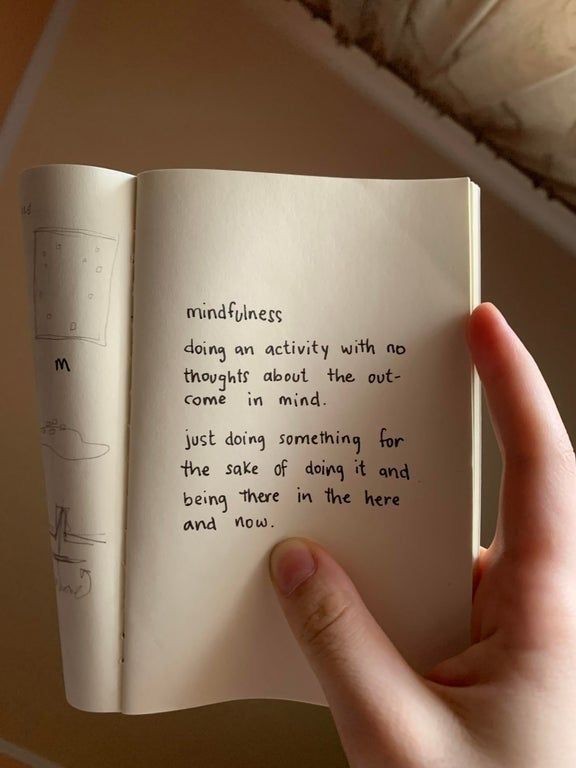 mindfulness
doing an activity with no
thoughts about the out-
come in mind.
just doing something for
the sake of doing it and
being there in the here
and now.
M